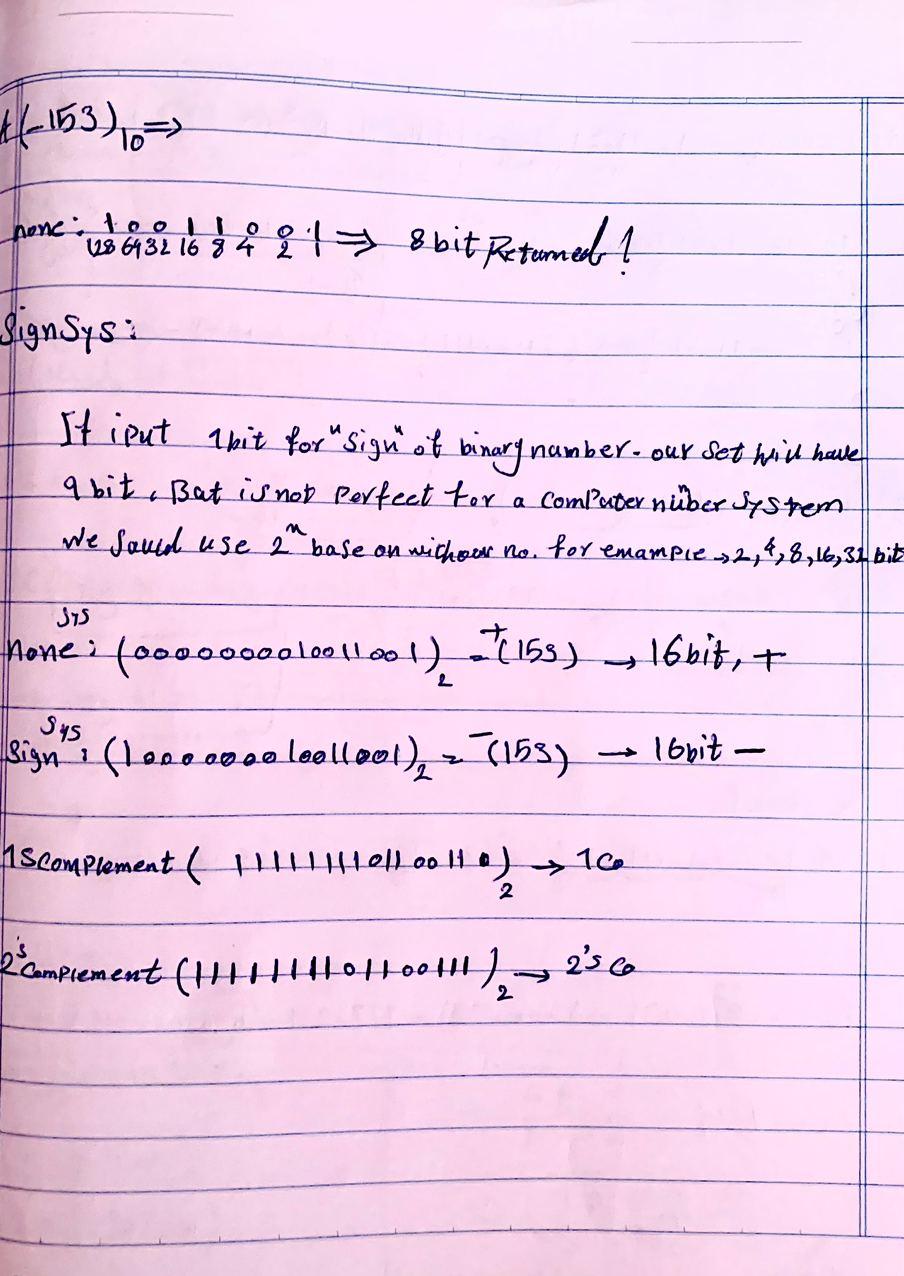 (-153)10 ⇒
none: 1 0 0 1 1 0 0 1 ⇒ 8 bit Returned!
128 64 32 16 8 4 2 1
SignSys:
If iput 1bit for "Sign" of binary number. our set will have
9 bit, Bat is not perfect for a computer number system
We Sould use 2^n base on withour no. for emample → 2, 4, 8, 16, 32 bit
sys
none: (0000000010011001)2 = +(153) → 16bit, +
Sys
Sign: (1000000010011001)2 = -(153) → 16bit -
1SComplement ( 1111111101100110 )2 → 1Co
2'sComplement (1111111101100111)2 → 2's Co